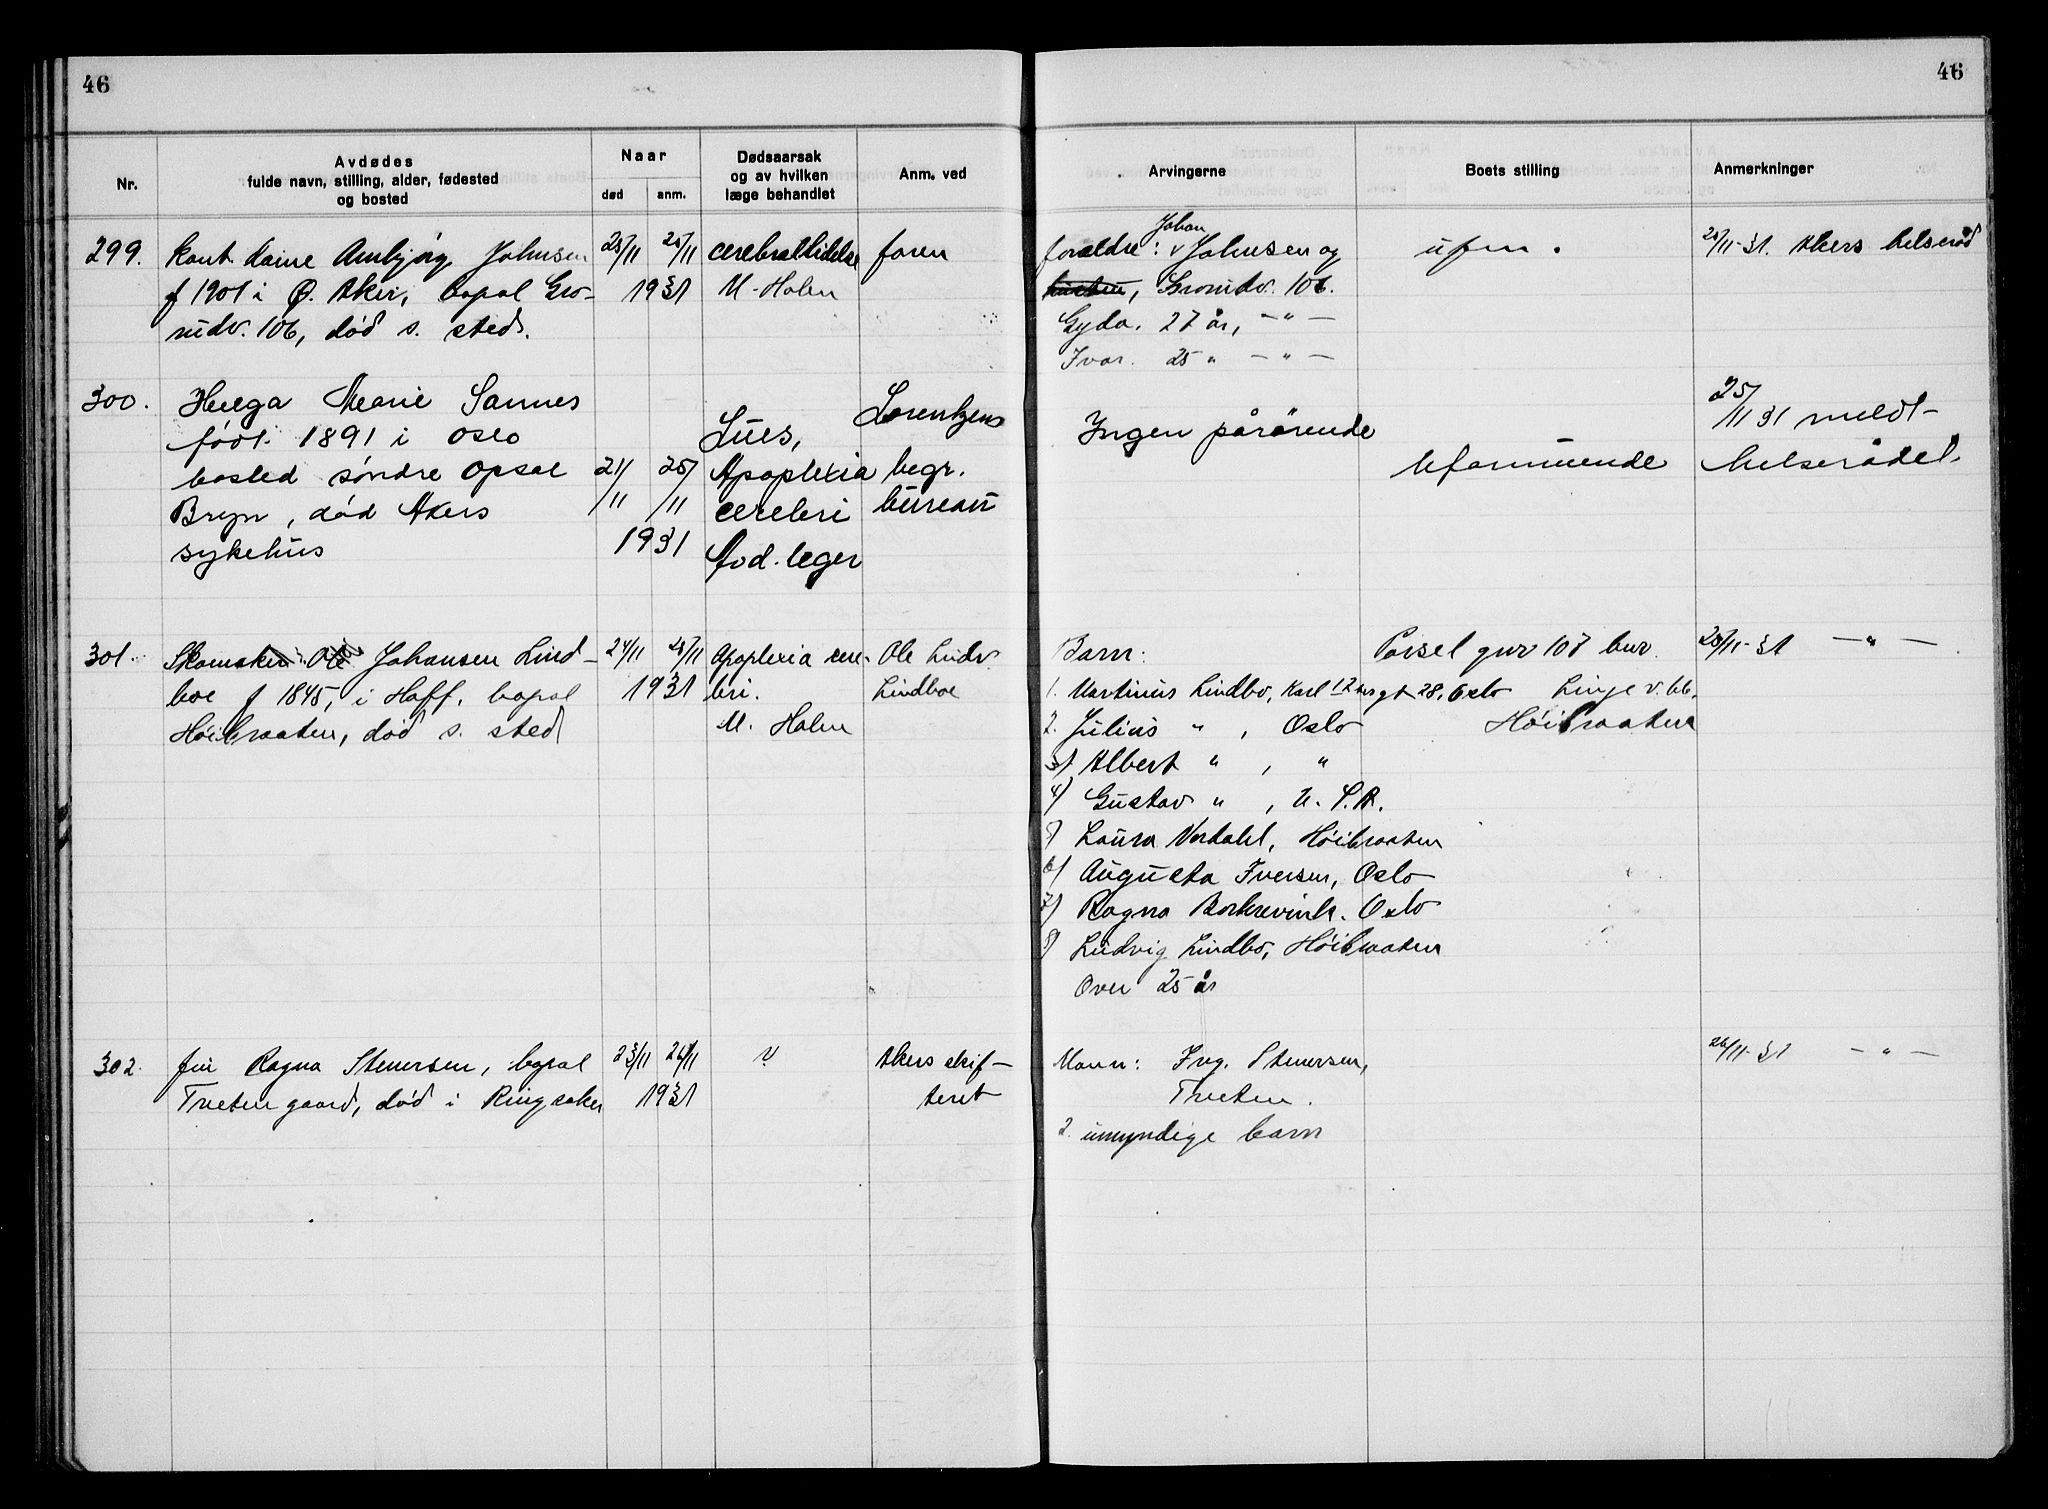 46
46
Nr.
Avdødes
fulde navn, stilling, alder, fødested
og bosted
Naar
død
anm.
Dødsaarsak
og av hvilken
læge behandlet
Anm. ved
Arvingerne
Boets stilling
Anmerkninger
299. kont. daine Ambjørg Johnsen 25/11 25/11 cerebrallidelse faren
f 1901 i Ø. Aker, bopal Gro- 1931 M. Holm
rudv. 106, død s. sted.
Johan
foreldre: v Johnsen og ufm. 25/11-31. Akers helseråd
Grorudv. 106.
Gyda. 27 år, — " —
Ivar. 25 " — " —
300. Helga Marie Sannes
født 1891 i Oslo
bosted søndre Opsal 21/11 25/11
Bryn, død Akers 1931
sykehus
Lues,
Apoplexia
cerebri
Avd. leger
Lorentzens
begr.
bureau
Ingen pårørende
Uformuende
25/11 31 meldt
helserådet.
301. Skomaker Ole Johansen Lind- 24/11 25/11 Apoplexia cere- Ole Ludv
boe f 1845, i Hoff, bopal 1931 bri. Lindboe
Høibraaten, død s. sted M. Holm
Barn: Parsel gnr 107 bnr. 25/11-31 — " —
1. Martinus Lindbo, Karl 12 tes gt 28, Oslo Linje v. bb.
2. Julius " , Oslo Høibraaten
3) Albert " , "
4) Gustav " , U. S. A.
5) Laura Nordahl, Høibraaten
6) Augusta Iversen, Oslo
7) Ragna Borkrevink. Oslo
8) Ludvig Lindbo, Høibraaten
Over 25 år
302. fru Ragna Stenersen, bopal 23/11 26/11 ? Akers skif-
Tveten gaard, død i Ringsaker 1931 teret
Mann: Ing. Stenersen, 26/11-31 — " —
Tveten.
2. umyndige barn